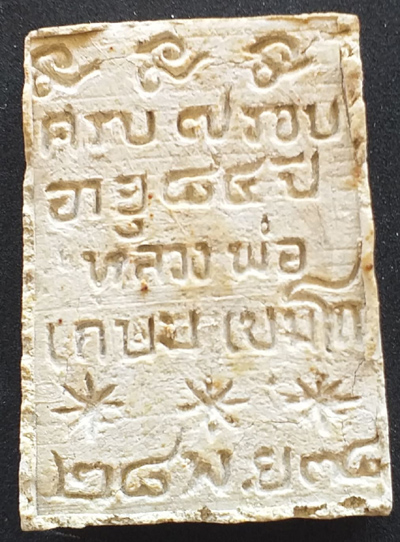 ครบ ๗ รอบ
อายุ ๘๔ ปี
หลวง พ่อ
เกษม เขมโก
๒๘ พ.ย ๓๘